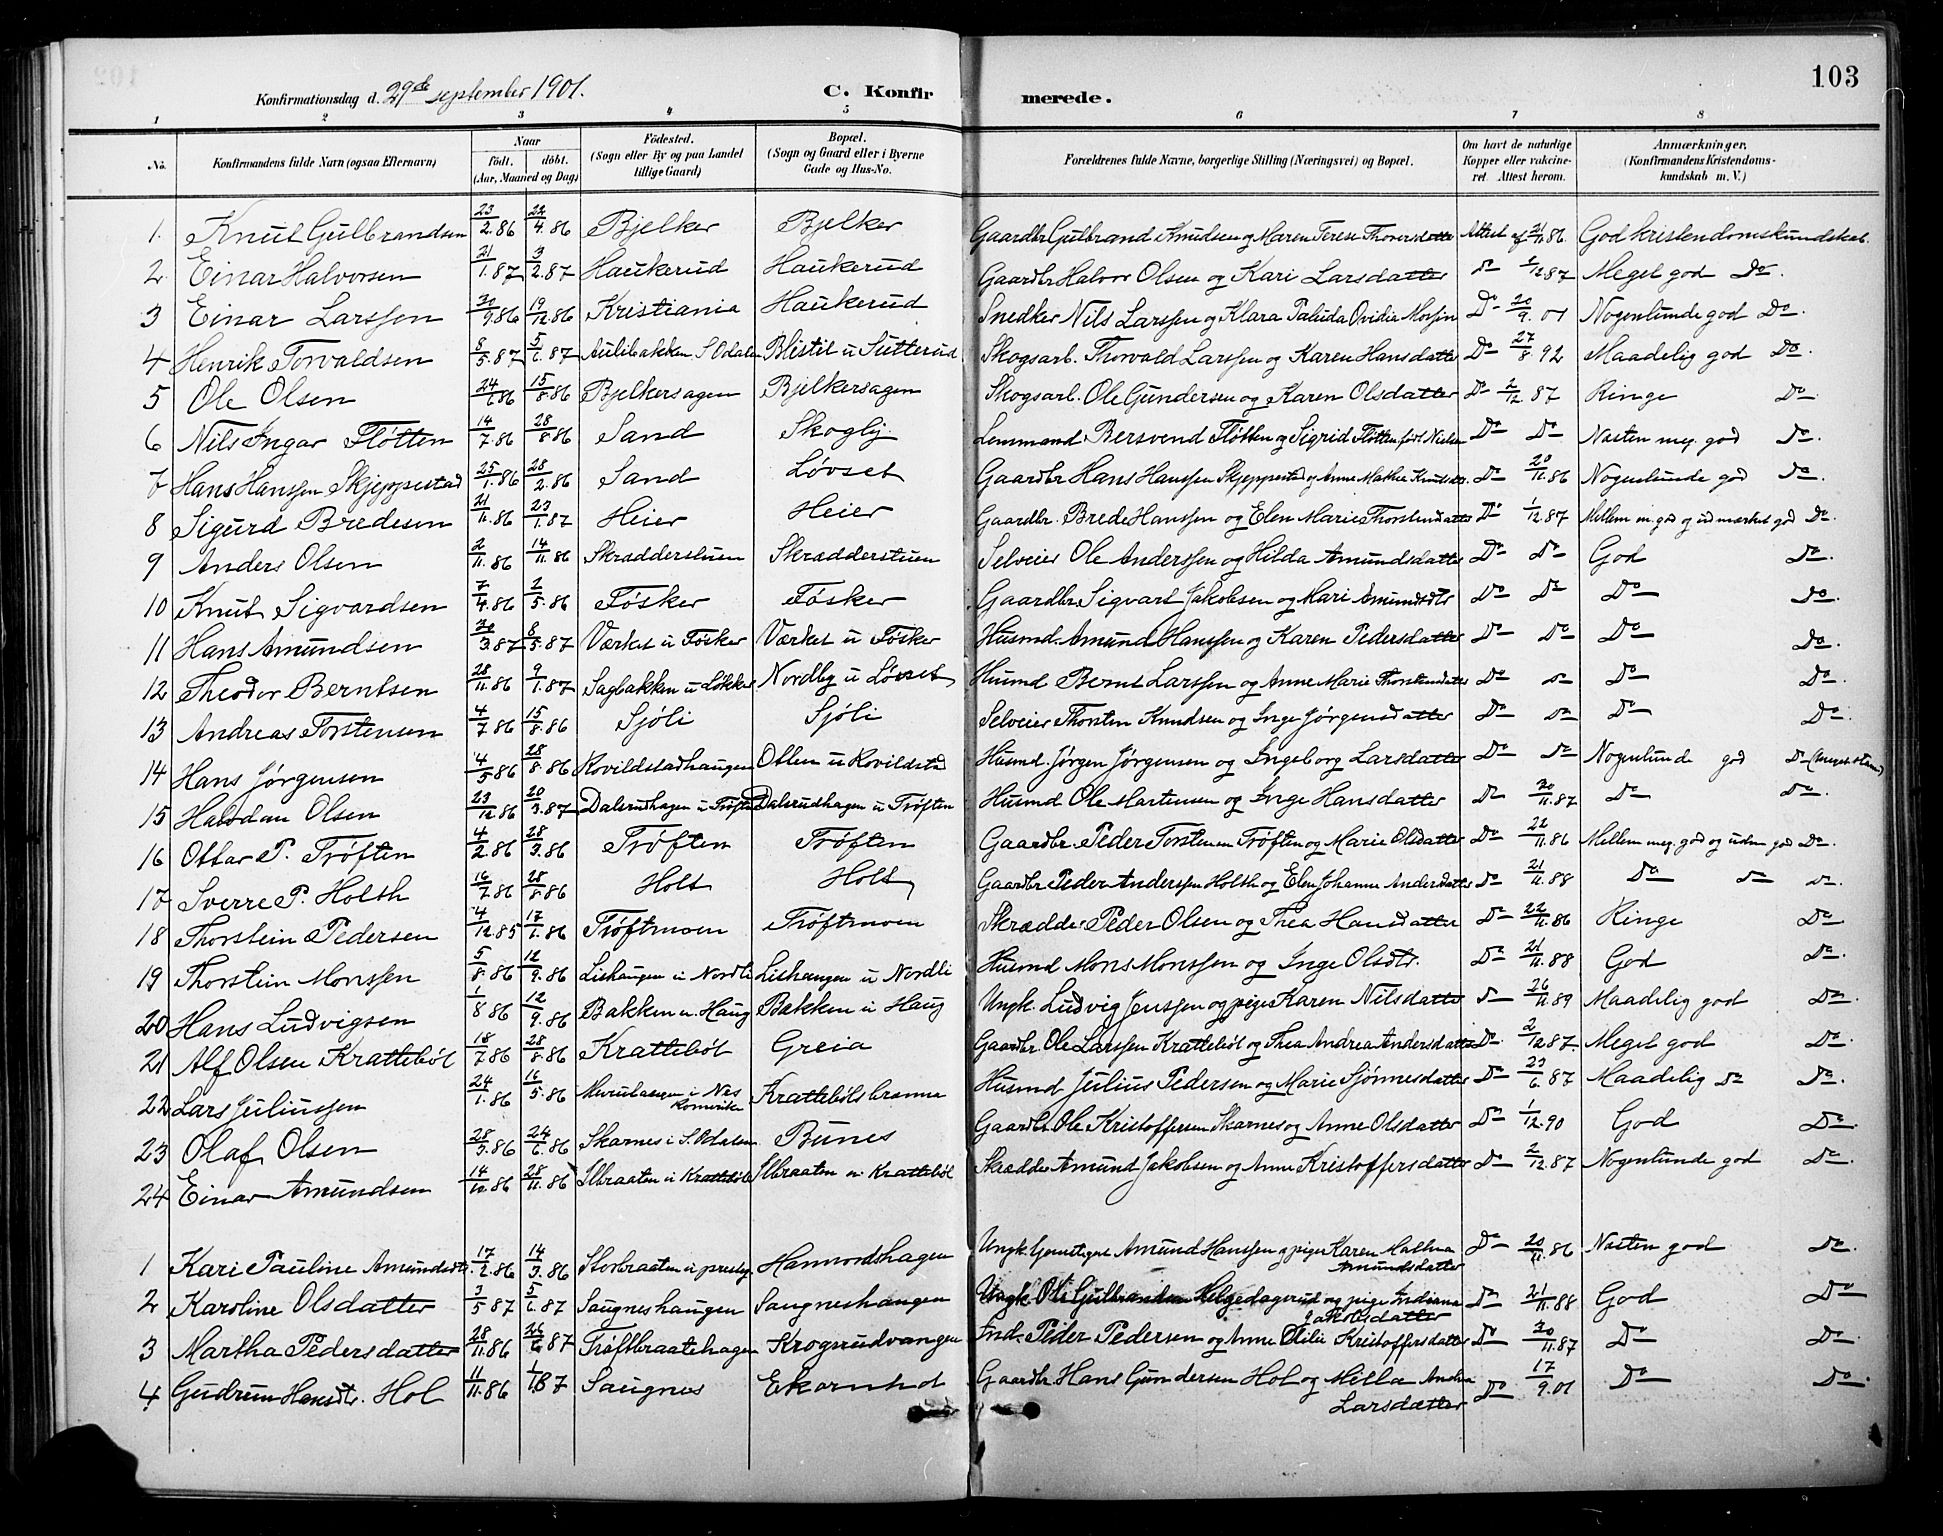 103
Konfirmationsdag d. 29de september 1901. C. Konfirmerede.
1 2 3 4 5 6 7 8
No. Konfirmandens fulde Navn (ogsaa Efternavn) Naar født. døbt. (Aar, Maaned og Dag) Födested. (Sogn eller By og paa Landet tillige Gaard) Bopæl. (Sogn og Gaard eller i Byerne Gade og Hus-No. Forældrenes fulde Navne, borgerlige Stilling (Næringsvei) og Bopæl. Om havt de naturlige Kopper eller vakcineret Attest herom. Anmærkninger. (Konfirmandens Kristendomskundskab m. V.)
1. Knut Gulbrandsen 23/2.86 22/4.86 Bjelker Bjelker Gaardbr Gulbrand Knudsen og Maren Terese Thoversdatter Attest af 21/11.86 God kristendomskundskab
2 Einar Halvorsen 21/1.87 3/2.87 Haukerud Haukerud Gaardbr Halvor Olsen og Kari Larsdatter Do 1/12.87 Meget god Do.
3 Einar Larssen 30/9.86 19/12.86 Kristiania Haukerud Snedker Nils Larssen og Klara Paluda Ovidia Do 20/9.01 Nogenlunde god Do.
4 Henrik Torvaldsen 8/5.87 5/6.87 Aulibakken S Odalen u Sutterud Skogsarb. Thorvald Larssen og Karen Hansdatter Do 27/8 92 Maadelig god Do.
5 Ole Olsen 24/ 86 15/8.86 Bjelkersagen Bjelkersagen Skogsarb. Ole Gundersen og Karen Olsdatter Do 2/12 87 Ringe Do.
6 Nils Ingar Fløtten 14/7.86 28/8.86 Sand Skogly Lensmand Bersvend Fløtten og Sigrid Fløtten født Nielsen Do Do Næsten meg. god Do.
7 Hans Hanssen Skjeppestad 25/1.86 28/2.86 Sand Løvset Gaardbr Hans Hanssen Skjeppestad og Anne Mathea Do 20/11.86 Nogenlunde god Do.
8 Sigurd Bredesen 21/11.86 23/1.87 Heier Heier Gaardbr. Brede Hanssen og Elen Marie Thorstensdatter Do 1/12.87 Mellem m. god og udmærket god Do.
9 Anders Olsen 2/11.86 14/11.86 Skrædderstuen Skrædderstuen Selveier Ole Anderssen og Hilda Amundsdatter Do Do God Do.
10 Knut Sigvardsen 7/4.86 2/5.86 Fösker Fösker Gaardbr Sigvart Jakobsen og Mari Amundsdtr Do Do Do Do.
11 Hans Amundsen 30/3.87 8/5.87 Værket u Fösker Værket u Fösker Husmd. Amund Hanssen og Karen Pedersdatter Do Do Do Do.
12 Theodor Berntsen 28/11.86 9/1.87 Sagbakken u Løkker Nordby u Løvset Husmd Bernt Larssen og Anne Marie Thorstensdatter Do Do Do Do.
13 Andreas Torstensen 4/7.86 15/8.86 Sjöli Sjöli Selveier Thorsten Knudsen og Inge Jørgensdatter Do Do Do Do.
14 Hans Jørgensen 4/5 86 28/8.86 Kovildstadhaugen u Kovildstad Husmd. Jørgen Jørgensen og Ingeborg Larsdatter Do Do Nogenlunde god Do
15 Halvdan Olsen 23/12.86 20/3.87 Dalsrudhagen u Trøften Dalsrudhagen u Trøften Husmd Ole Martensen og Inge Hansdatter Do 30/11.87 Do Do.
16 Ottar P. Trøften 4/2.86 28/3.86 Trøften Trøften Gaardbr. Peder Torstensen Trøften og Marie Olsdatter Do 22/11.86 Mellem meg. god og udm god Do.
17 Sverre P. Holth 16/7.86 28/8.86 Holt Holt Gaardbr Peder Anderssen Holth og Elen Johanne Andersdatter Do 21/11.88 Do Do Do.
18 Thorstein Pedersen 4/12.85 17/1.86 Trøftmoen Trøftmoen Skrædder Peder Olsen og Thea Hansdatter Do 22/11.86 Ringe Do
19 Thorstein Monssen 5/8.86 12/9.86 Lishaugen u Nordli Lishaugen u Nordli Husmd Mons Monssen og Inge Olsdtr. Do 21/11.88 God Do.
20 Hans Ludvigsen 1/8 86 12/9.86 Bakken u. Haug Bakken u Haug Ungk. Ludvig Jenssen og pige Karen Nilsdatter Do 26/11.89 Maadelig god Do.
21 Alf Olsen Krattebøl 18/7.86 28/8.86 Krattebøl Greia Gaardbr. Ole Larssen Krattebøl og Thea Andrea Andersdatter Do. 2/12.87. Meget god Do.
22 Lars Juliussen 24/1.86 16/5.86 i Nes Romerike Krattebølsbraaten Husmd Julius Pedersen og Marie Sjønnesdatter Do 23/6.87 Maadelig Do Do.
23 Olaf Olsen 28/5.86 24/6.86 Skarnes i S. Odalen Bunes Gaardbr. Ole Kristoffersen Skarnes og Anne Olsdatter Do 1/12.90 God Do.
24 Einar Amundsen 14/10.86 28/11.86 Ilbraaten u Krattebøl Ilbraaten u Krattebøl Skrædder Amund Jakobsen og Anne Kristoffersdatter Do 2/12.87 Nogenlunde god Do.
1 Kari Pauline Amundsdtr. 17/2.86 14/3.86 Storbraaten u prestg. Hannordshagen Ungk. Amund Hanssen og pige Karen Mathea Amundsdatter Do 20/11.86 Næsten god Do.
2 Karoline Olsdatter 3/5 87 5/6.87 Saugneshaugen Saugneshaugen Ungk. Ole Gulbrandsen Helgedagerud og pige Indiana Jakobsdatter Do 21/11.88 God Do
3 Martha Pedersdatter 28/11.86 26/6 87 Trøftbraatehagen Krogsrudvangen Ind. Peder Pedersen og Anne Otilie Kristoffersdatter Do 30/11.87 Do Do.
4 Gudrun Hansdtr. Hol 11/11.86 1/1.87 Saugnes Ekornhol Gaardbr. Hans Gundersen Hol og Milla Andrea Larsdatter Do 17/9.01 Do Do.